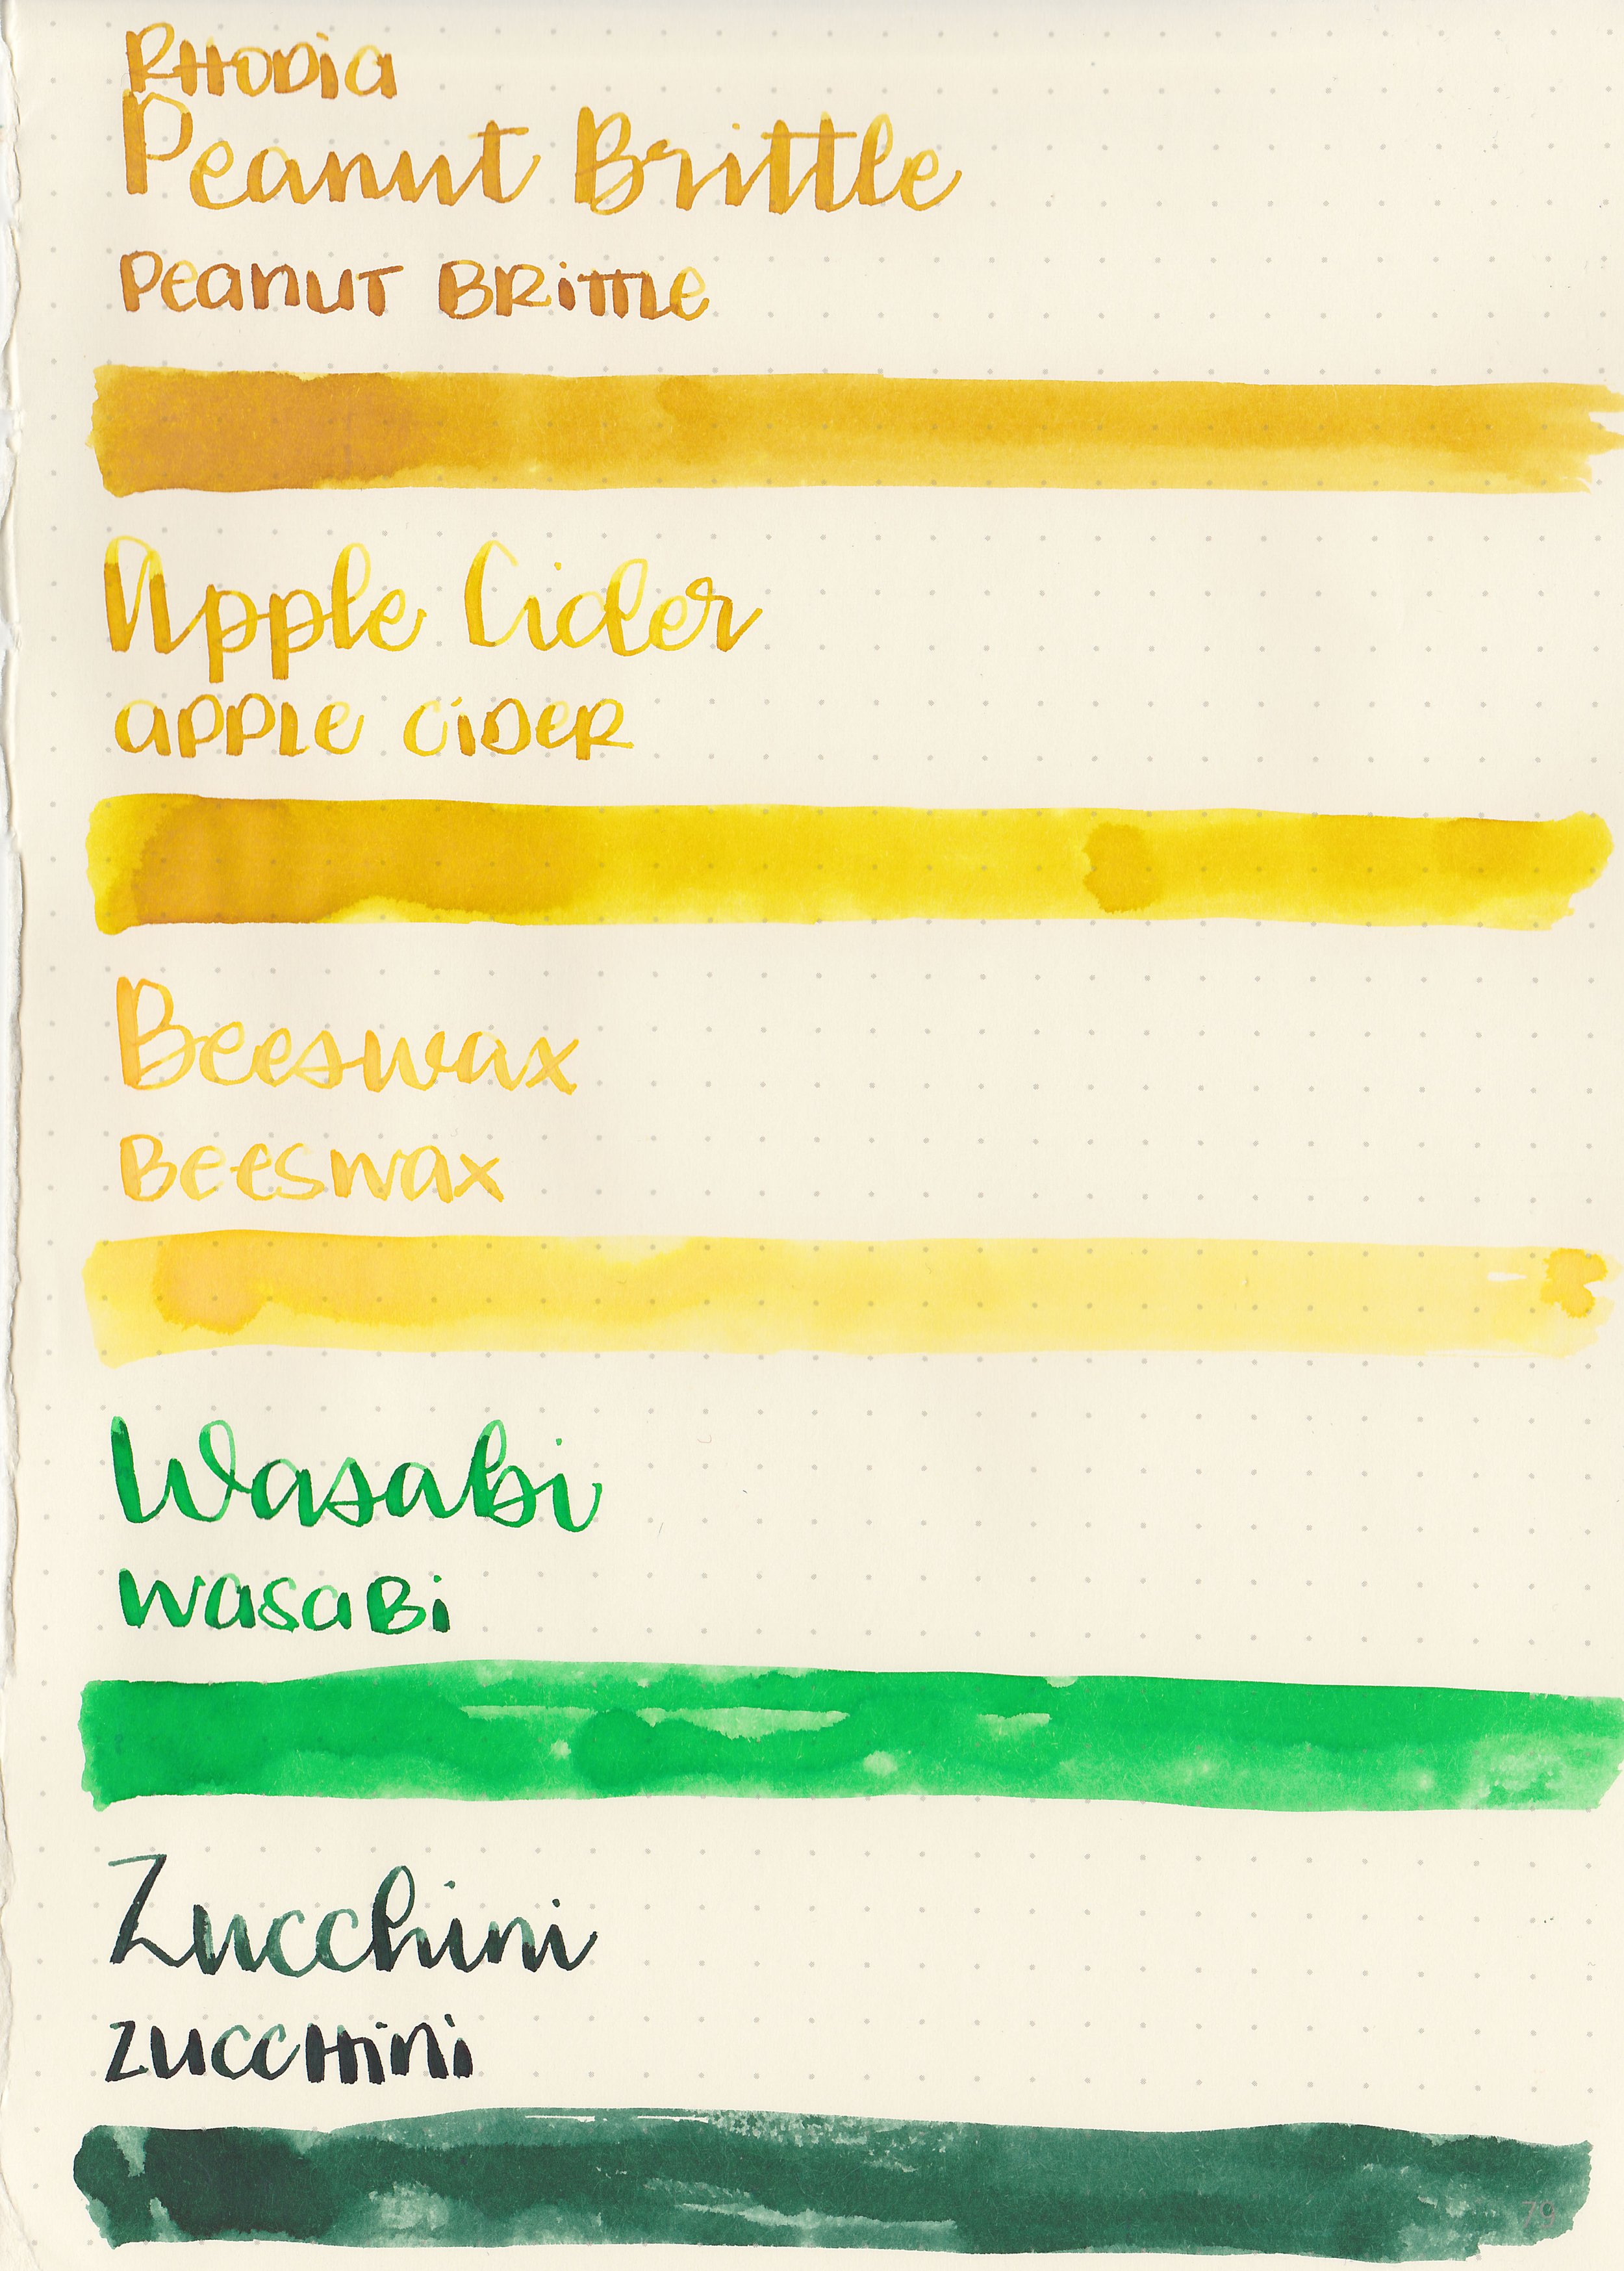 RHODIA
Peanut Brittle
Peanut Brittle
Apple Cider
Apple Cider
Beeswax
Beeswax
Wasabi
Wasabi
Zucchini
Zucchini
79